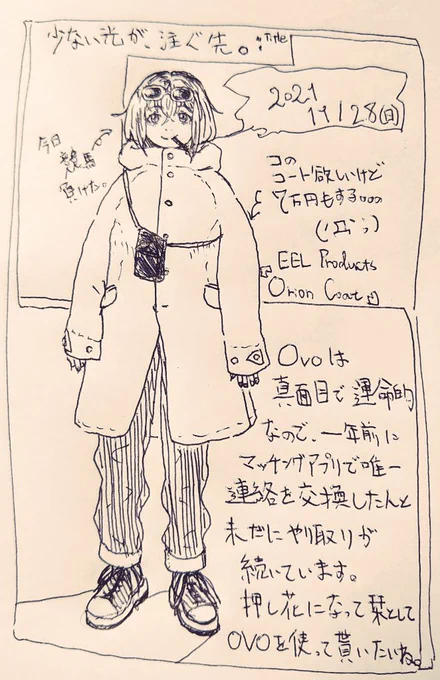 少ない光が、注ぐ先。:Title
2021
11/28(日)
今日
競馬
負けた。
コの
コート欲しいけど
7万円もする。。。
EEL Products
Orion Coat
OVOは
真面目で運命的
なので、一年前に
マッチングアプリで唯一
連絡を交換したんと
未だにやり取りが
続いています。
押し花になって栞として
OVOを使って貰いたいね。